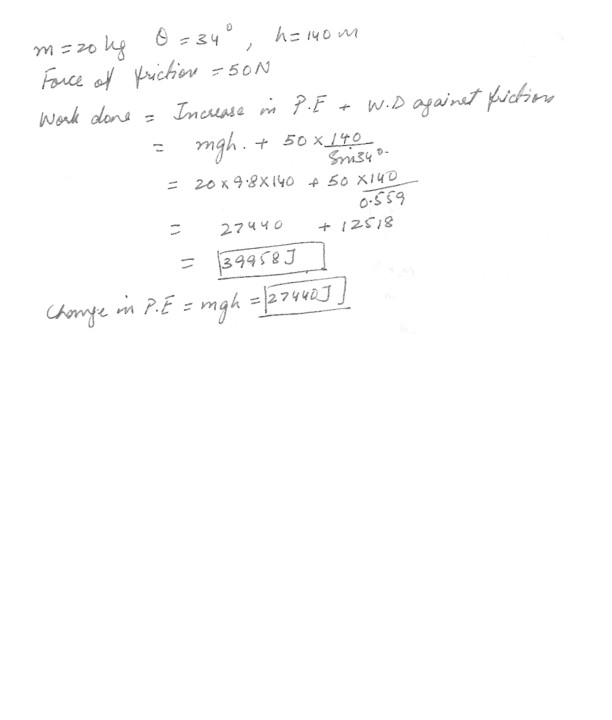 m = 20 kg θ = 34°, h = 140 m
Force of friction = 50N
Work done = Increase in P.E + W.D against friction
= mgh. + 50 × 140 / Sin34°.
= 20 × 9.8 × 140 + 50 × 140 / 0.559
= 27440 + 12518
= 39958 J
Change in P.E = mgh = 27440J